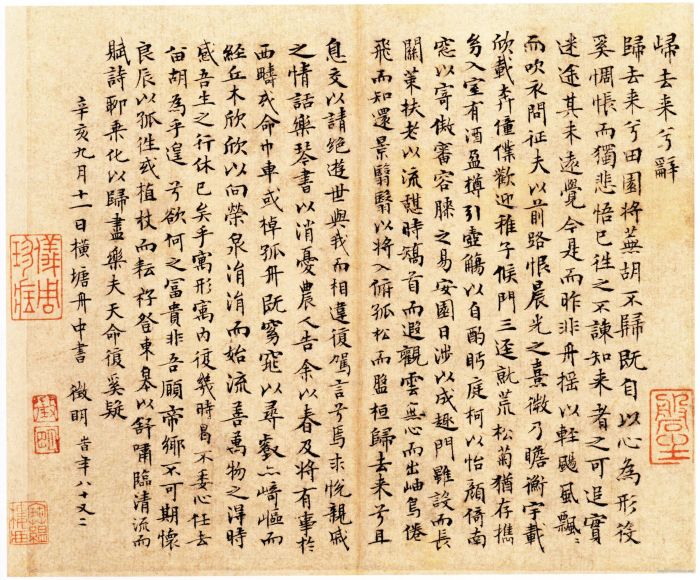 歸去来兮辭
歸去来兮田園將蕪胡不歸既自以心為形役
奚惆悵而獨悲悟已往之不諫知来者之可追實
迷途其未遠覺今是而昨非舟摇以輕颺風飄〻
而吹衣問征夫以前路恨晨光之熹微乃瞻衡宇載
欣載奔僮僕歡迎稚子候門三逕就荒松菊猶存携
幼入室有酒盈罇引壺觴以自酌眄庭柯以怡顔倚南
窓以寄傲審容膝之易安園日涉以成趣門雖設而長
關策扶老以流憩時矯首而遐觀雲無心而出岫鳥倦
飛而知還景翳翳以將入孤松而盤桓歸去来兮且
息交以請絕遊世與我而相違復駕言兮焉求悅親戚
之情話樂琴書以消憂農人告余以春及將有事於
西疇或命巾車或棹孤舟既窈窕以尋壑亦崎嶇而
經丘木欣欣以向榮泉涓涓而始流善萬物之得時
感吾生之行休已矣乎寓形寓內復幾時曷不委心任去
留胡為乎遑兮欲何之富貴非吾願帝鄉不可期懷
良辰以孤往或植杖而耘耔登東皋以舒嘯臨清流而
賦詩聊乘化以歸盡樂夫天命復奚疑
辛亥九月十二日橫塘舟中書 徵明 時年八十又二
儀周珍藏
徵明